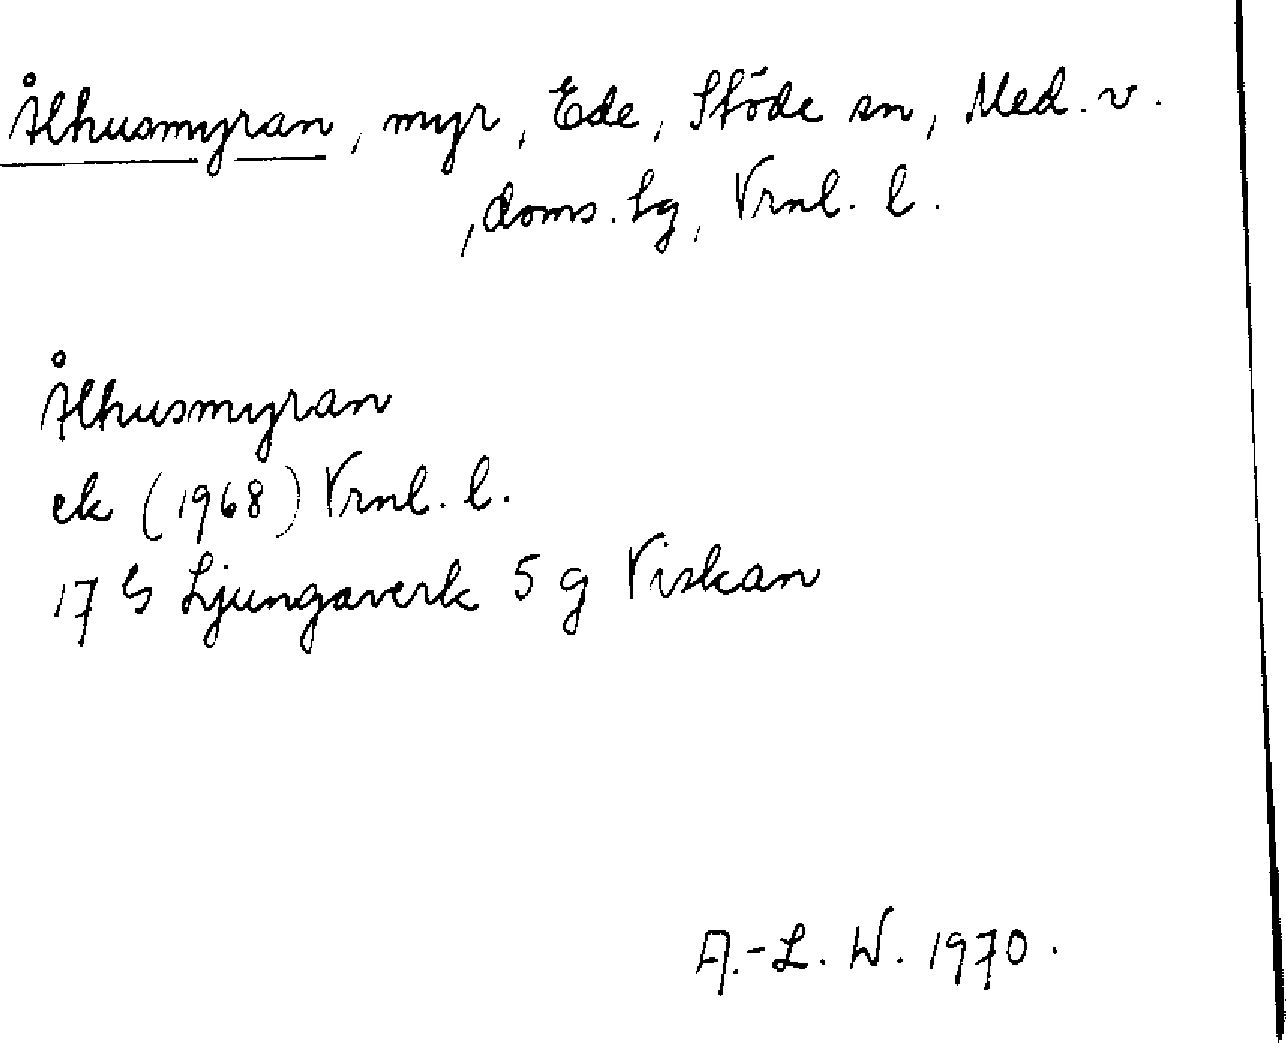 Ålhusmyran, myr, Ede, Stöde sn, Med. v.
, doms. lg, Vrnl. l.
Ålhusmyran
ek (1968) Vrnl. l.
17 G Ljungaverk 5 g Viskan
A.-L. W. 1970.